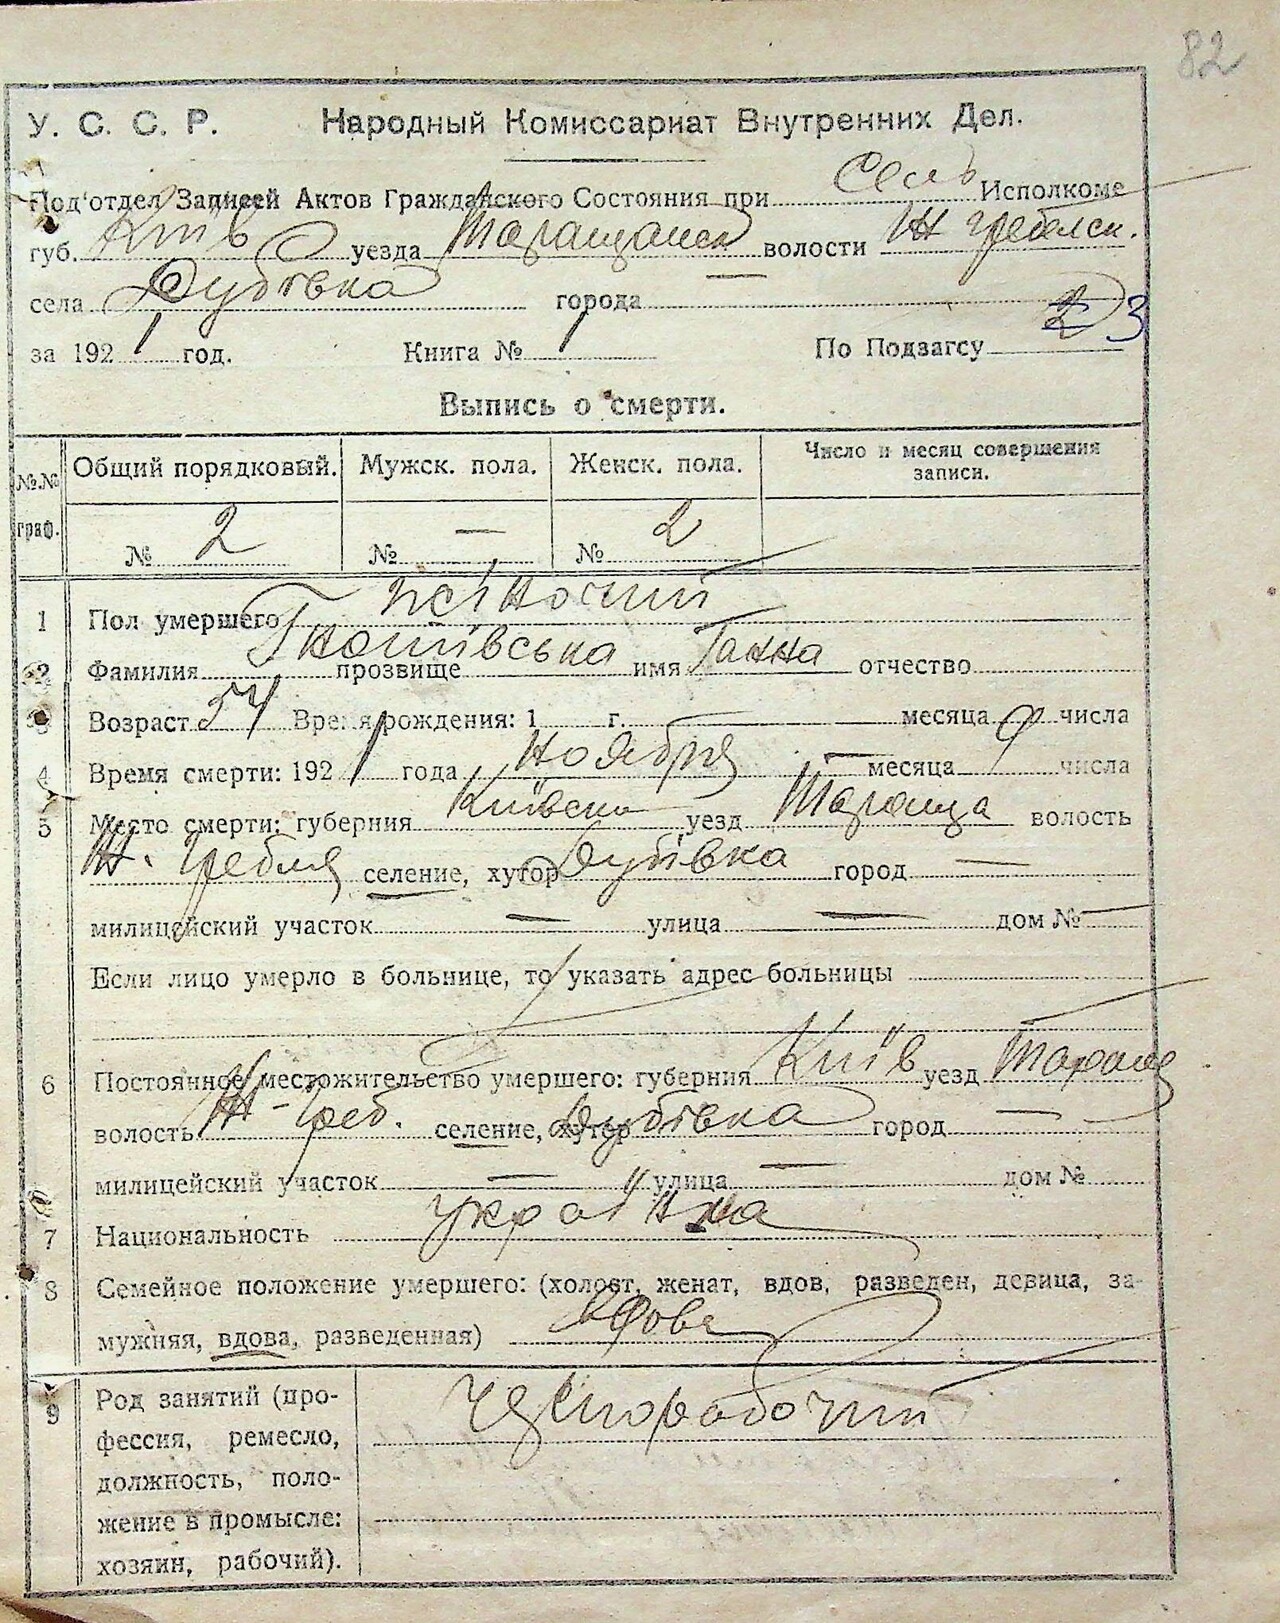 82
У. С. С. Р. Народный Комиссариат Внутренних Дел.
Под'отдел Записей Актов Гражданского Состояния при Сель Исполкоме
губ. Київ уезда Таращанск волости Ж гребелск.
села Дубівка города —
за 1921 год. Книга № 1 По Подзагсу 2 3
Выпись о смерти.
№.№ граф. Общий порядковый. Мужск. пола. Женск. пола. Число и месяц совершения записи.
№ 2 № — № 2
1 Пол умершего жіночий
2 Фамилия прозвище Гнатівська имя Ганна отчество
3 Возраст 54 Время рождения: 1 г. месяца числа
4 Время смерти: 1921 года ноября месяца 9 числа
5 Место смерти: губерния Київськ уезд Тараща волость
Ж. Гребля селение, хутор Дубівка город —
милицейский участок — улица — дом № —
Если лицо умерло в больнице, то указать адрес больницы
6 Постоянное местожительство умершего: губерния Київ уезд Таращ
волость Ж-Греб. селение, хутор Дубівка город —
милицейский участок — улица — дом №
7 Национальность українка
8 Семейное положение умершего: (холост, женат, вдов, разведен, девица, за-
мужняя, вдова, разведенная) вдова
9 Род занятий (про-
фессия, ремесло,
должность, поло-
жение в промысле:
хозяин, рабочий).
чернорабочий